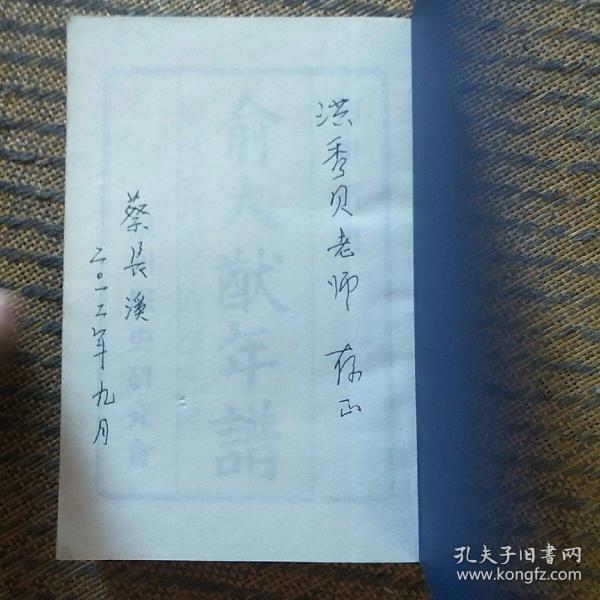 洪秀贝老师 存正
蔡长溪
二〇一二年九月
俞大猷年谱
孔夫子旧书网
www.kongfz.com